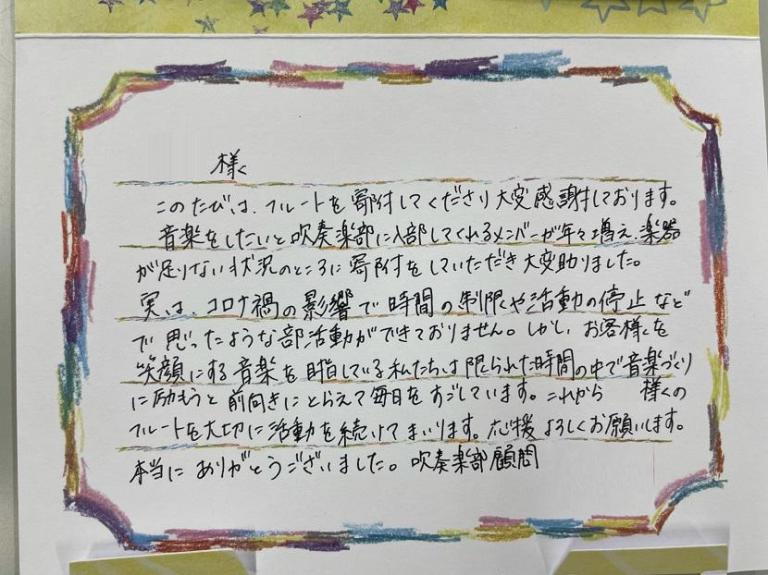 様
このたびは、フルートを寄付してくださり大変感謝しております。
音楽をしたいと吹奏楽部に入部してくれるメンバーが年々増え、楽器
が足りない状況のところに寄附をしていただき大変助りました。
実は、コロナ禍の影響で時間の制限や活動の停止など
で思ったような部活動ができておりません。しかし、お客様を
笑顔にする音楽を目指している私たちは限られた時間の中で音楽づくり
に励もうと前向きにとらえて毎日をすごしています。これから 様の
フルートを大切に活動を続けてまいります。応援よろしくお願いします。
本当にありがとうございました。吹奏楽部顧問